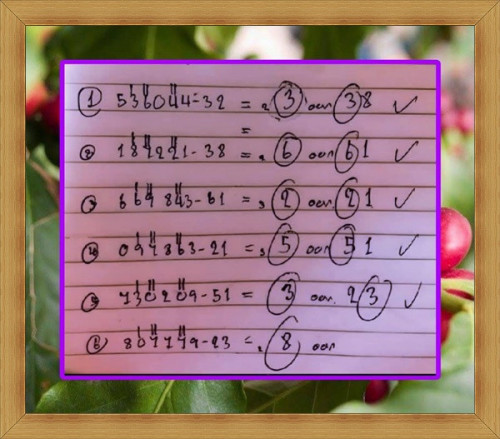 ① 536044-32 = ③ ออก ③8 ✓
=
② 187221-38 = ⑥ ออก ⑥1 ✓
③ 669843-61 = ② ออก ②1 ✓
④ 097863-21 = ⑤ ออก ⑤1 ✓
⑤ 730209-51 = ③ ออก 2③ ✓
⑥ 807779-23 = ⑧ ออก